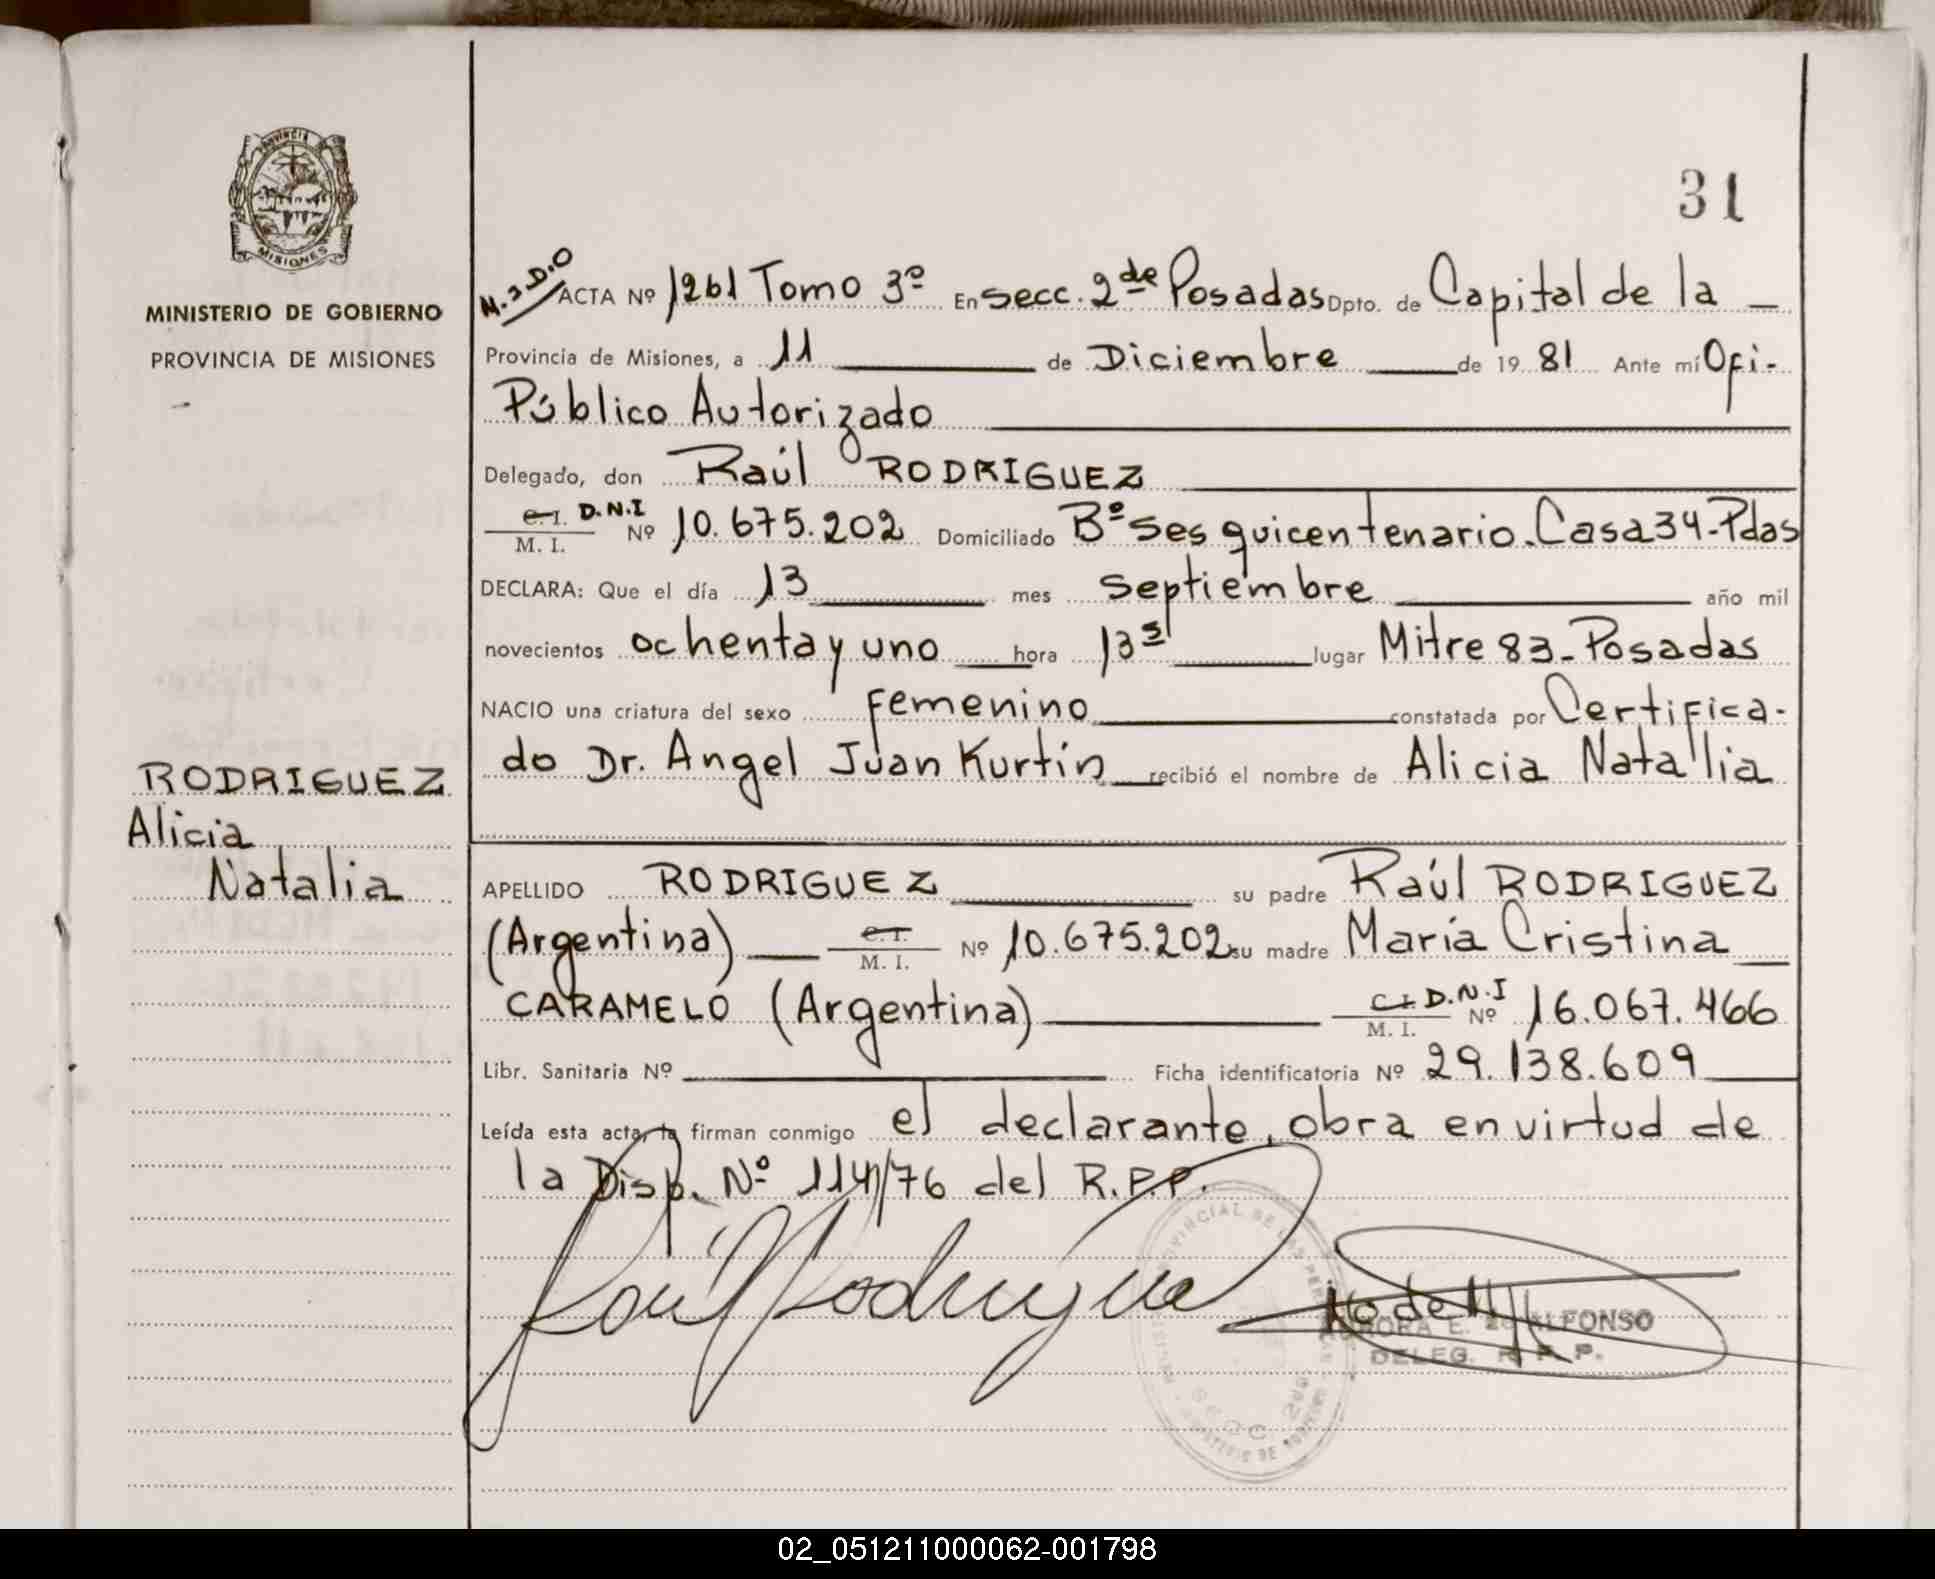 31
PROVINCIA
MISIONES
MINISTERIO DE GOBIERNO
PROVINCIA DE MISIONES
RODRIGUEZ
Alicia
Natalia
ACTA Nº 1261 Tomo 3º En Secc. 2de Posadas Dpto. de Capital de la
Provincia de Misiones, a 11 de Diciembre de 1981 Ante mí Ofi-
Público Autorizado
Delegado, don Raúl RODRIGUEZ
C.I. D.N.I M. I. Nº 10.675.202 Domiciliado Bº Sesquicentenario. Casa 34-Pdas
DECLARA: Que el día 13 mes Septiembre año mil
novecientos ochenta y uno hora 13 lugar Mitre 83-Posadas
NACIO una criatura del sexo Femenino constatada por Certifica-
do Dr. Angel Juan Kurtin recibió el nombre de Alicia Natalia
APELLIDO RODRIGUEZ su padre Raúl RODRIGUEZ
(Argentina) C.I. M. I. Nº 10.675.202 su madre María Cristina
CARAMELO (Argentina) C.I D.N.I M. I. Nº 16.067.466
Libr. Sanitaria Nº Ficha identificatoria Nº 29.138.609
Leída esta acta, la firman conmigo el declarante, obra en virtud de
la Disp. Nº 114/76 del R.P.P.
Raúl Rodriguez
E. de ALFONSO
DELEG. R. P. P.
02_051211000062-001798